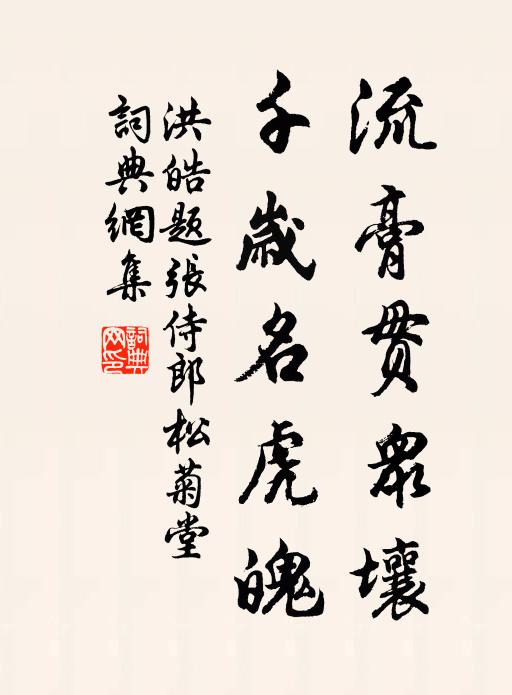 流膏貫衆壤
千歲名虎魄
洪皓題張侍郎松菊堂
詞典網集
詞典
网印